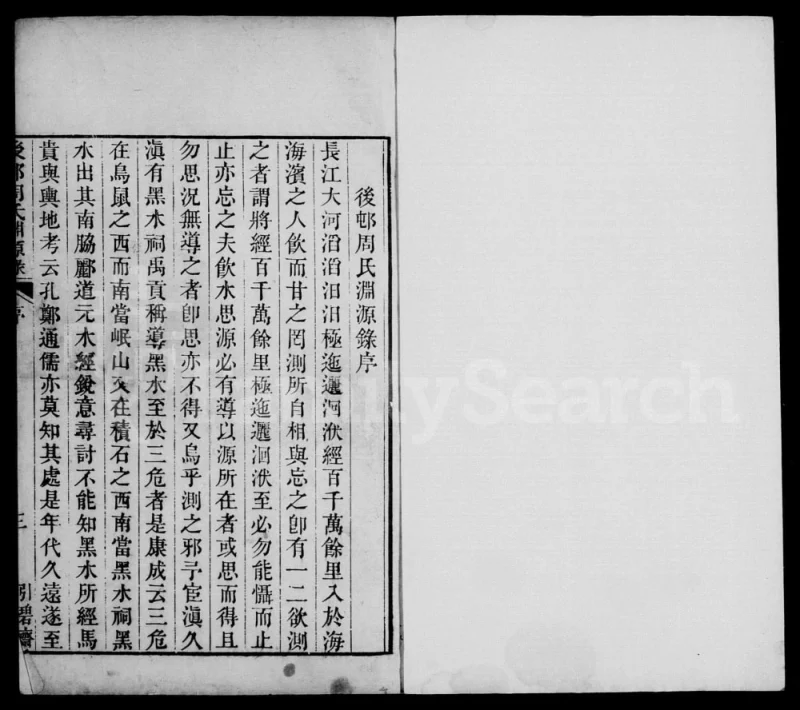 後邨周氏淵源錄序
長江大河滔滔汩汩極迤邐洄洑經百千萬餘里入於海
海濱之人飲而甘之罔測所自相與忘之卽有一二欲測
之者謂將經百千萬餘里極迤邐洄洑至必勿能懾而止
止亦忘之夫飲水思源必有導以源所在者或思而得且
勿思況無導之者卽思亦不得又烏乎測之邪予宦滇久
滇有黑水祠禹貢稱導黑水至於三危者是康成云三危
在鳥鼠之西而南當岷山又在積石之西南當黑水祠黑
水出其南脇酈道元水經銳意尋討不能知黑水所經馬
貴與輿地考云孔鄭通儒亦莫知其處是年代久遠遂至
後邨周氏淵源錄 序 三 引碧齋
FamilySearch